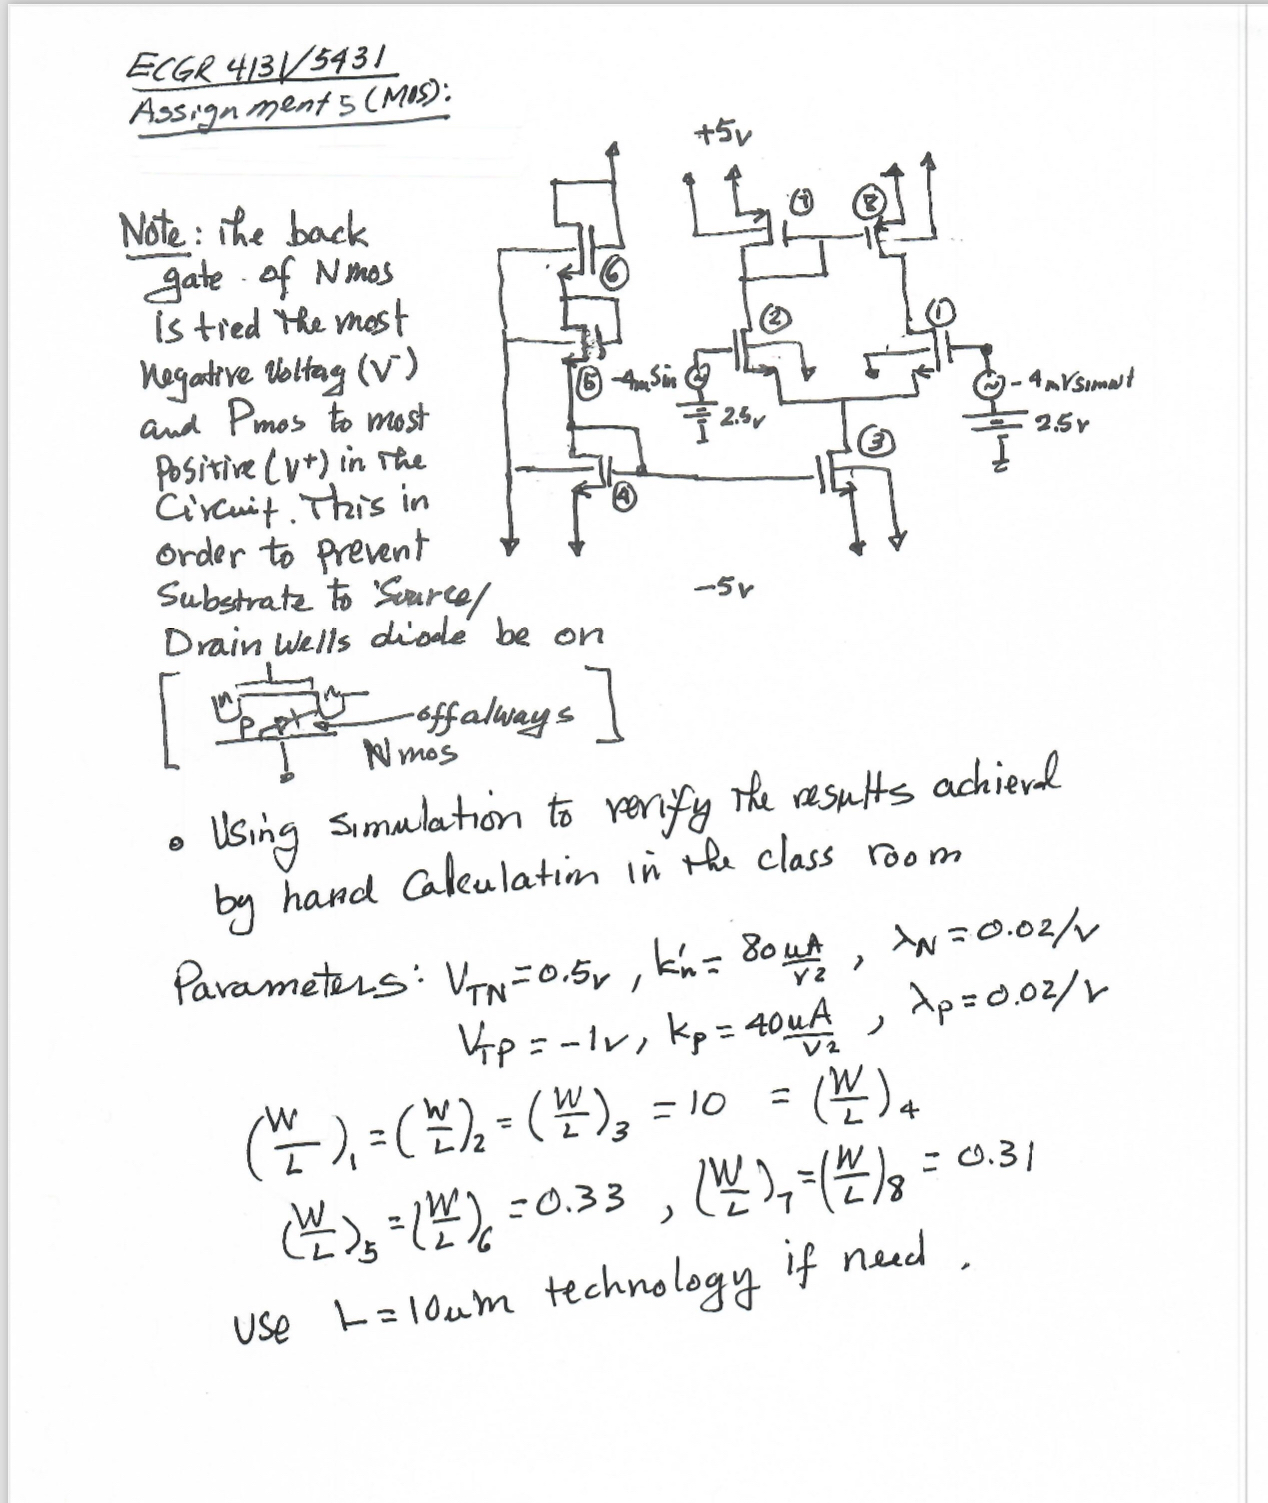 ECGR 4131/5431
Assignment 5 (MOS):
+5v
Note: The back
gate of Nmos
is tied the most
Negative Voltag (V-)
and Pmos to most
Positive (V+) in The
Circuit. This in
order to prevent
Substrate to Source/
Drain Wells diode be on
7
8
6
2
1
5
-4mSin
2.5v
-4mVsinwt
2.5v
3
4
-5v
n
n
P
off always
Nmos
• Using simulation to verify the results achievd
by hand Calculation in the class room
Parameters: VTN=0.5v, k'n= 80uA/V2, λN=0.02/v
VTP=-1v, kp=40uA/V2, λp=0.02/v
(W/L)1=(W/L)2=(W/L)3=10 = (W/L)4
(W/L)5=(W/L)6=0.33, (W/L)7=(W/L)8=0.31
Use L=10um technology if need.